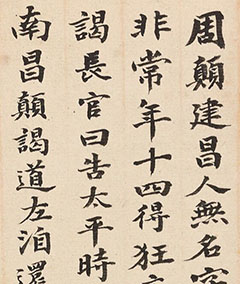 周顛建昌人無名字
非常年十四得狂
謁長官曰告太平時
南昌顛謁道左洎還